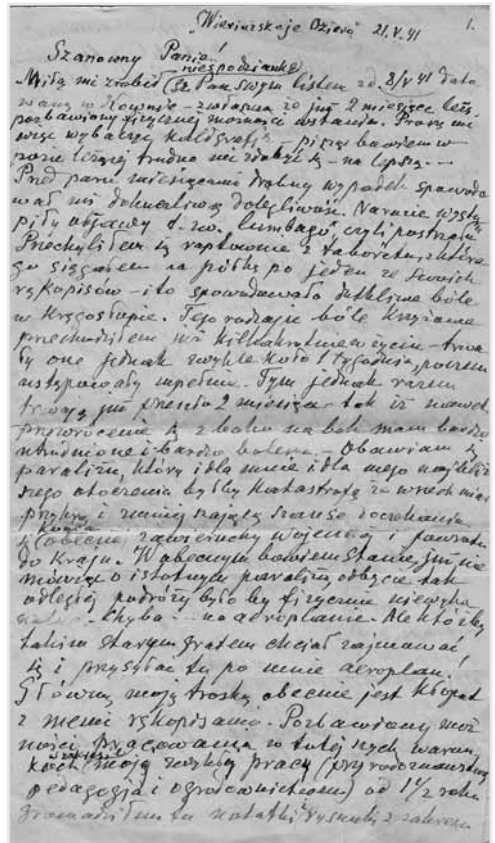 "Wierinskoje Oziero" 21.V.41 1.
Szanowny Panie!
niespodziankę
Miłą mi zrobił Sz. Pan swym listem z d. 8/V 41 dato
wanym w – zwłaszcza że już 2 miesiące leżę
pozbawiony fizycznej możności wstania. Proszę mi
więc wybaczyć kaligrafię – pisząc bowiem w
pozie leżącej trudno mi zdobyć się – na lepszą. –
Przed paru miesiącami drobny wypadek spowodo
wał mi dokuczliwą dolegliwość. Nagle wystą
piły objawy t. zw. lumbago, czyli postrzału.
Przechyliłem się raptownie z taboretu, z które
go sięgałem na półkę po jeden ze swoich
rękopisów – i to spowodowało dotkliwe bóle
w kręgosłupie. Tego rodzaju bóle krzyżowe
przechodziłem już kilkakrotnie w życiu – trwa
ły one jednak zwykle koło 1 tygodnia, poczem
ustępowały zupełnie. Tym jednak razem
trwają już przeszło 2 miesiące – tak iż nawet
przewrócenie się z boku na bok mam bardzo
utrudnione i bardzo bolesne. – Obawiam się
paraliżu, który i dla mnie i dla mego najbliż
szego otoczenia byłby katastrofą ze wszech miar
przykrą i zmniejszającą szanse doczekania
końca
się obecnej zawieruchy wojennej i powrotu
do Kraju. W obecnym bowiem stanie, już nie
mówiąc o istotnym paraliżu, odbycie tak
odległej podróży było by fizycznie niewyko
nalne. Chyba – – na aeroplanie. Ale któż by
takim starym gratem chciał zajmować
się i przysyłać tu po mnie aeroplan!
Główną moją troską obecnie jest kłopot
z memi rękopisami. Pozbawiony moż
ności pracowania w tutejszych warun
kach moją zwykłą pracą (przyrodoznawstwem
pedagogją i ogrodnictwem) od 1 1/2 roku
gromadziłem tu notatki i rysunki z zakresu